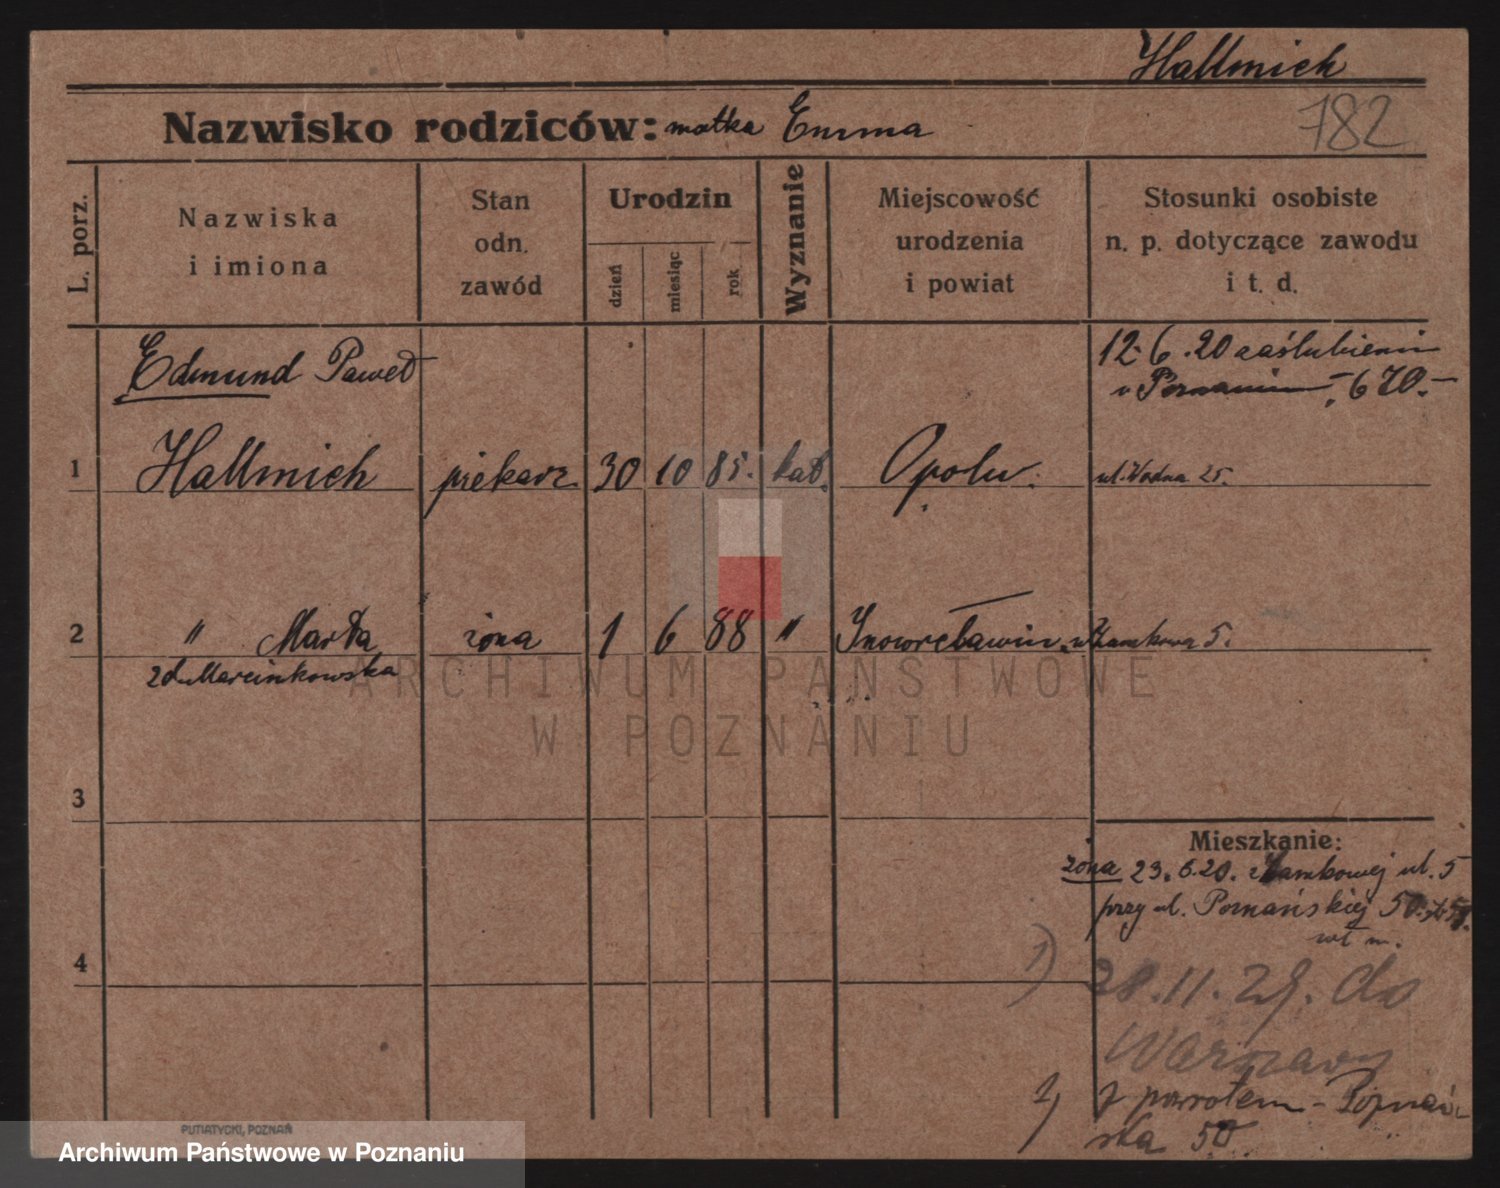 Hallmich
Nazwisko rodziców: matka Emma
782
L. porz.
Nazwiska
i imiona
Stan
odn.
zawód
Urodzin
dzień
miesiąc
rok
Wyznanie
Miejscowość
urodzenia
i powiat
Stosunki osobiste
n. p. dotyczące zawodu
i t. d.
Edmund Paweł
12.6.20 zaślubieni
w Poznaniu 670.-
1 Hallmich piekarz 30 10 85. kat. Opolu. ul. Wodna 25.
2 " Marta żona 1 6 88 " Inowrocławiu Zamkowa 5.
zd. Marcinkowska
ARCHIWUM PAŃSTWOWE
W POZNANIU
3
Mieszkanie:
żona 23.6.20. z Zamkowej ul. 5
przy ul. Poznańskiej 50
wł m.
4
1) 28.11.29. do
Warszawy
2) z powrotem - Poznań-
ska 50
PUTIATYCKI, POZNAŃ
Archiwum Państwowe w Poznaniu